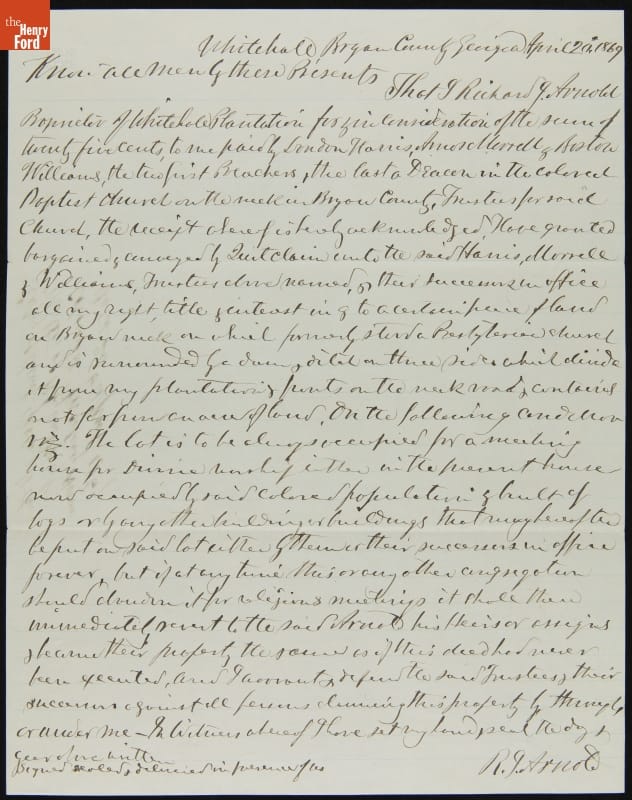 the
Henry
Ford
Whitehall Bryan County Georgia April 1869
Know all Men by these Presents
That I Richard J. Arnold
Proprietor of Whitehall Plantation for & in consideration of the sum of
twenty five cents, to me paid by London Harris, Amos Morrell & Boston
Williams, the two first Preachers, the last a Deacon in the colored
Baptist church on the neck in Bryan County, Trustees for said
Church, the receipt whereof is hereby acknowledged, Have granted
bargained & conveyed by Quit claim unto the said Harris, Morrell
& Williams, Trustees above named, & their successors in office
all my right, title & interest in & to a certain piece of land
on Bryan neck on which formerly stood a Presbyterian church
and is surrounded by a dam & ditch on three sides which divide
it from my plantation & fronts on the neck road & contains
not far from an acre of land, On the following condition
viz The lot is to be always occupied for a meeting
house for Divine worship either in the present house
now occupied by said colored population & built of
logs or by any other building or buildings that may hereafter
be put on said lot either by them or their successors in office
forever, but if at any time this or any other congregation
should abandon it for religious meetings it shall then
immediately revert to the said Arnold his heirs or assigns
& become their property the same as if this deed had never
been executed, and I warrant & defend the said Trustees & their
successors against all persons claiming this property by through
or under me — In Witness whereof I have set my hand & seal the day &
year above written
Signed sealed & delivered in presence of us
R. J. Arnold